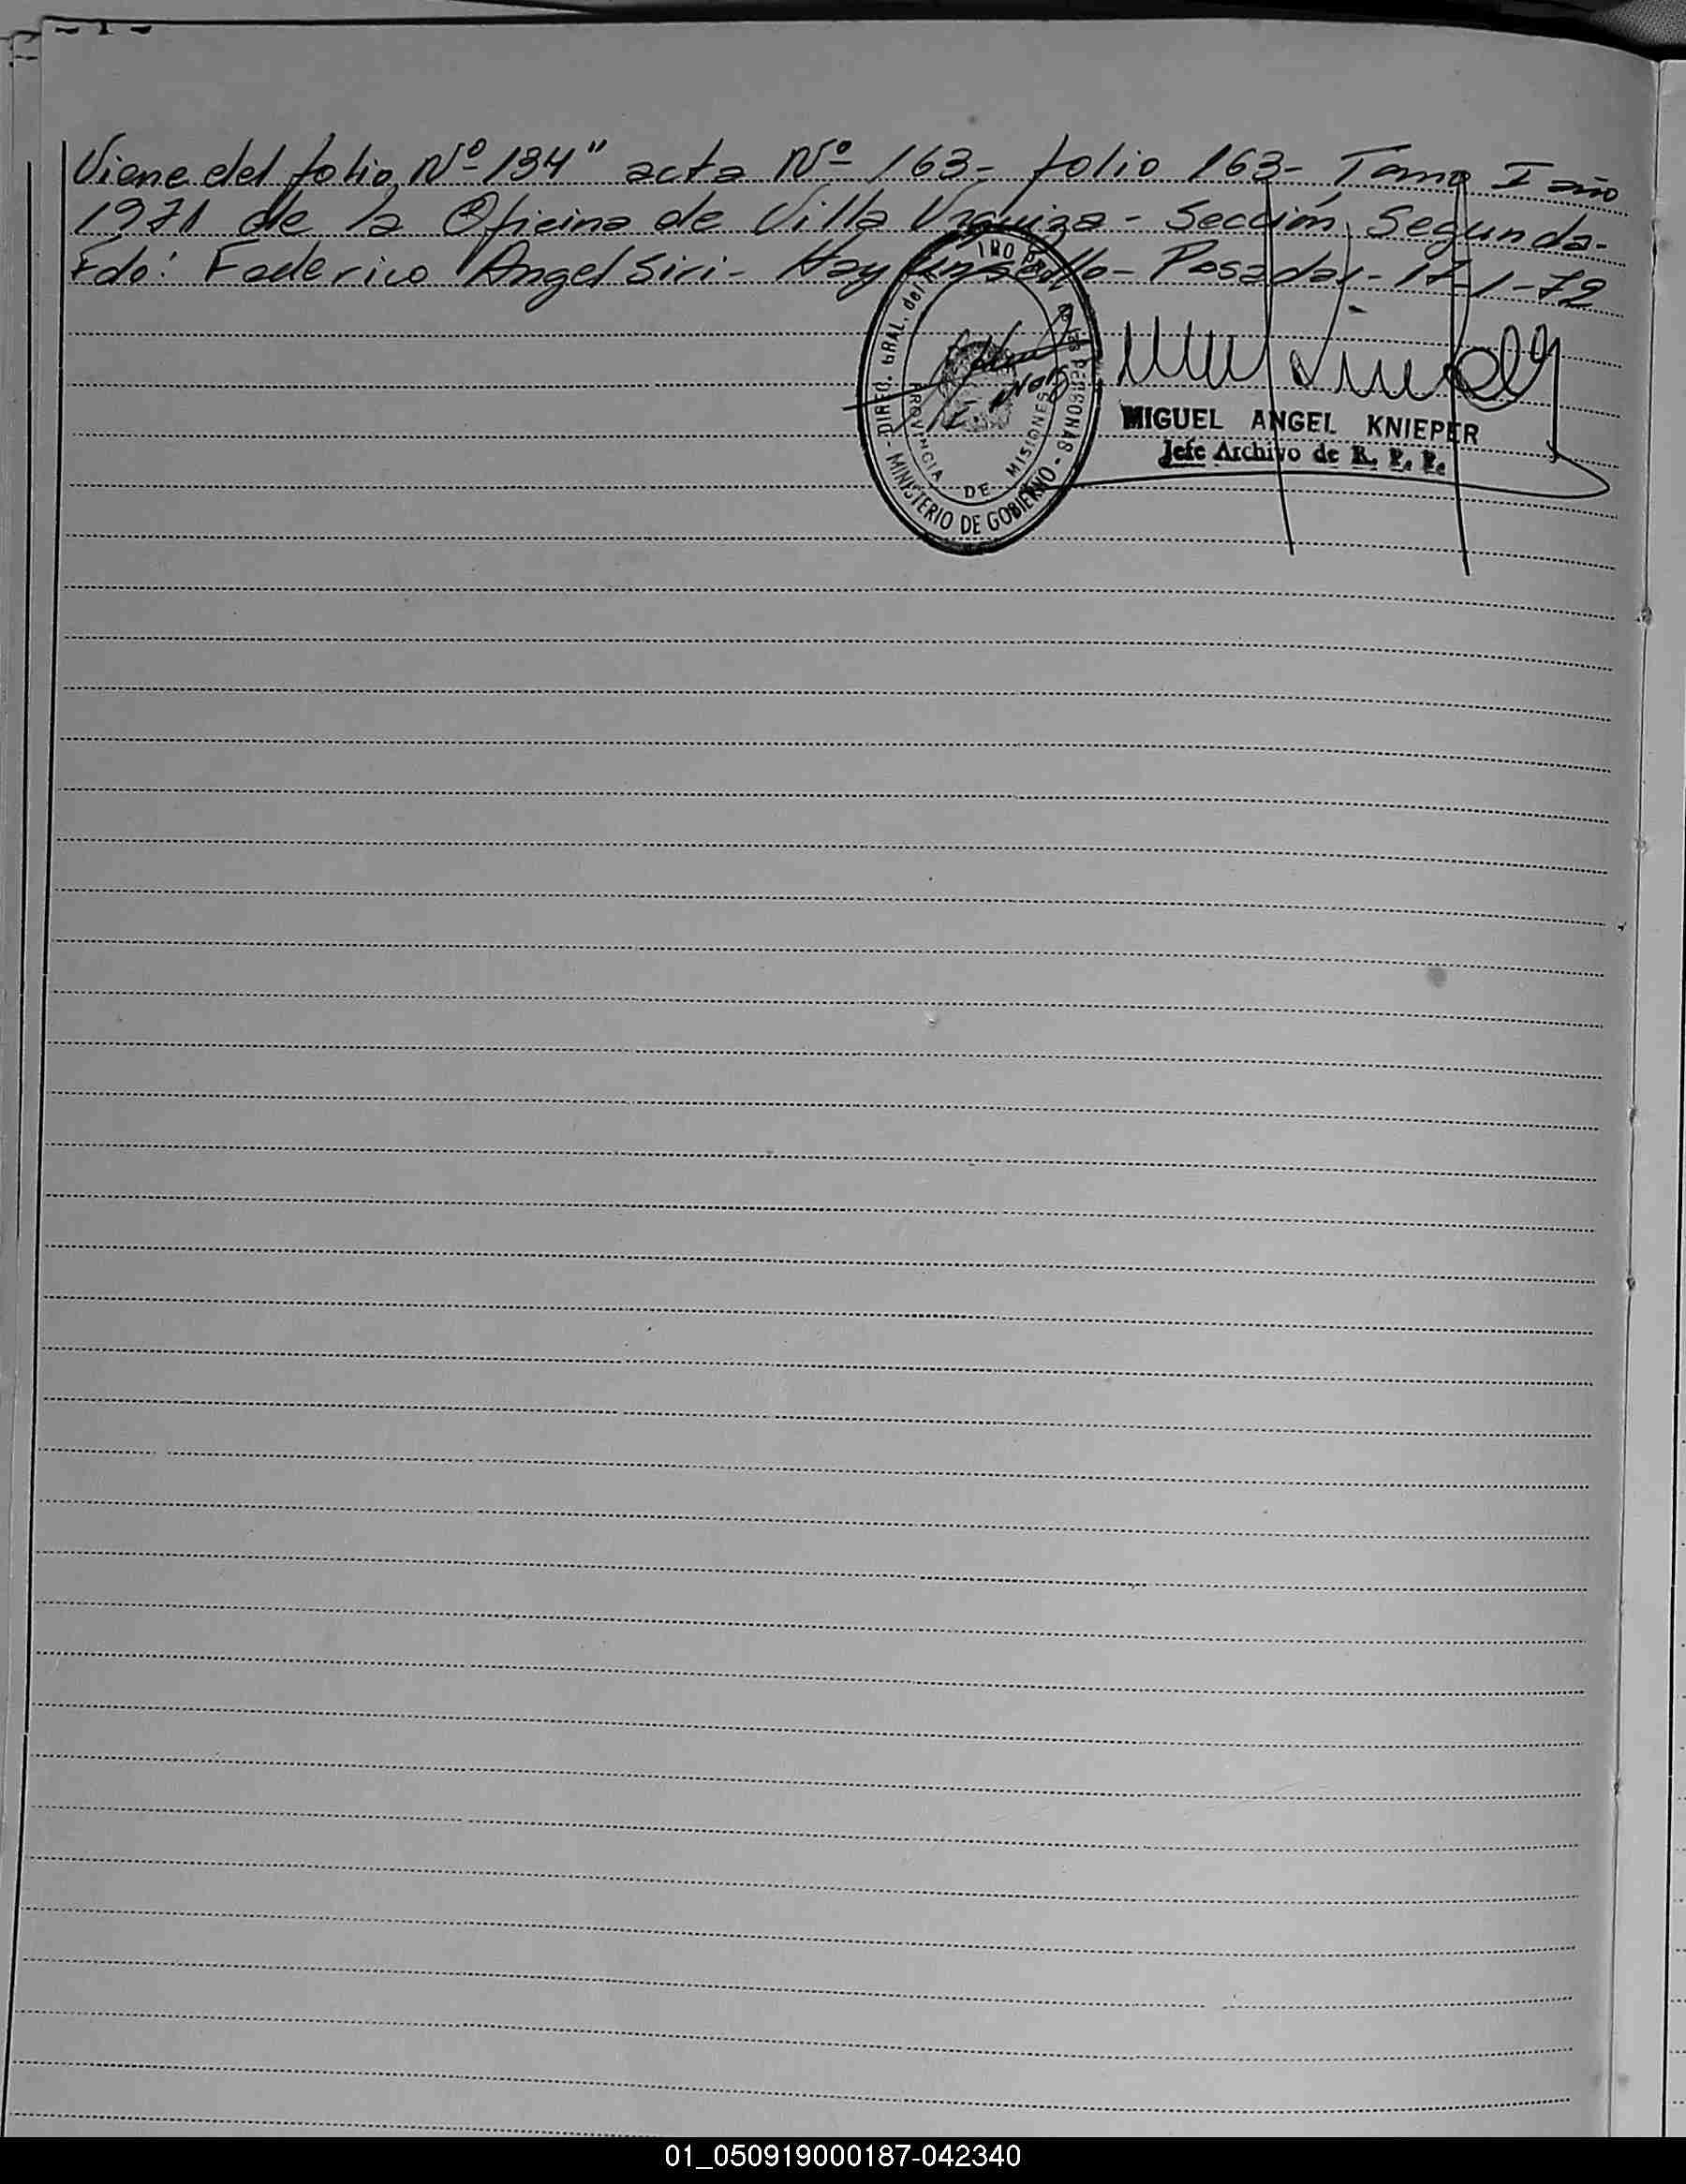 Viene del folio Nº 134" acta Nº 163- folio 163- Tomo I año
1971 de la Oficina de Villa Urquiza - Sección Segunda-
Fdo: Federico Angel Siri- Hay un sello- Posadas- 17-1-72
DIREC. GRAL. del PERSONAS - MINISTERIO DE GOBIERNO -
PROVINCIA DE MISIONES
MIGUEL ANGEL KNIEPER
Jefe Archivo de R. P. P.
01_050919000187-042340